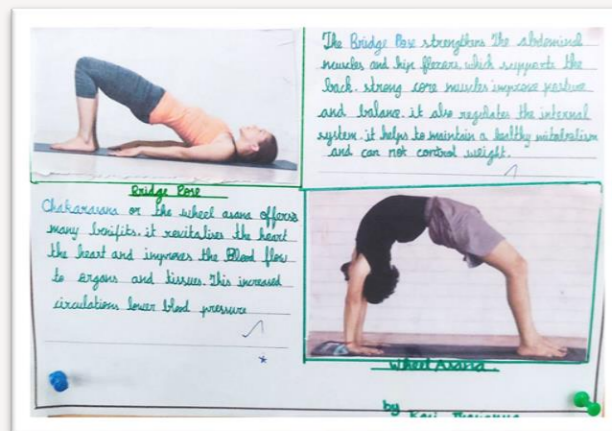 The Bridge Pose strengthens the abdominal
muscles and hip flexors which supports the
back. strong core muscles improve posture
and balance. it also regulates the internal
system. it helps to maintain a healthy metabolism
and can not control weight.
Bridge Pose
Chakarasana or the wheel asana offerss
many benifits. it revitalises the heart
the heart and improves the Blood flow
to organs and tissues. This increased
circulations lower blood pressure
Wheel Asana
by